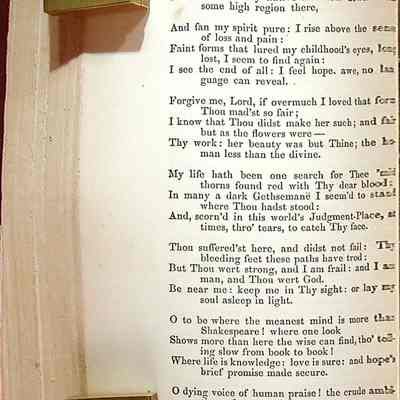 some high region there,
And fan my spirit pure: I rise above the sense
of loss and pain:
Faint forms that lured my childhood's eyes, long
lost, I seem to find again:
I see the end of all: I feel hope, awe, no lan
guage can reveal.
Forgive me, Lord, if overmuch I loved that form
Thou mad'st so fair;
I know that Thou didst make her such; and fair
but as the flowers were—
Thy work: her beauty was but Thine; the hu-
man less than the divine.
My life hath been one search for Thee 'mid
thorns found red with Thy dear blood:
In many a dark Gethsemane I seem'd to stand
where Thou hadst stood:
And, scorn'd in this world's Judgment-Place, at
times, thro' tears, to catch Thy face.
Thou suffered'st here, and didst not fail: Thy
bleeding feet these paths have trod:
But Thou wert strong, and I am frail: and I am
man, and Thou wert God.
Be near me: keep me in Thy sight: or lay my
soul asleep in light.
O to be where the meanest mind is more than
Shakespeare! where one look
Shows more than here the wise can find, tho' toil-
ing slow from book to book!
Where life is knowledge: love is sure: and hope's
brief promise made secure.
O dying voice of human praise! the crude ambi-